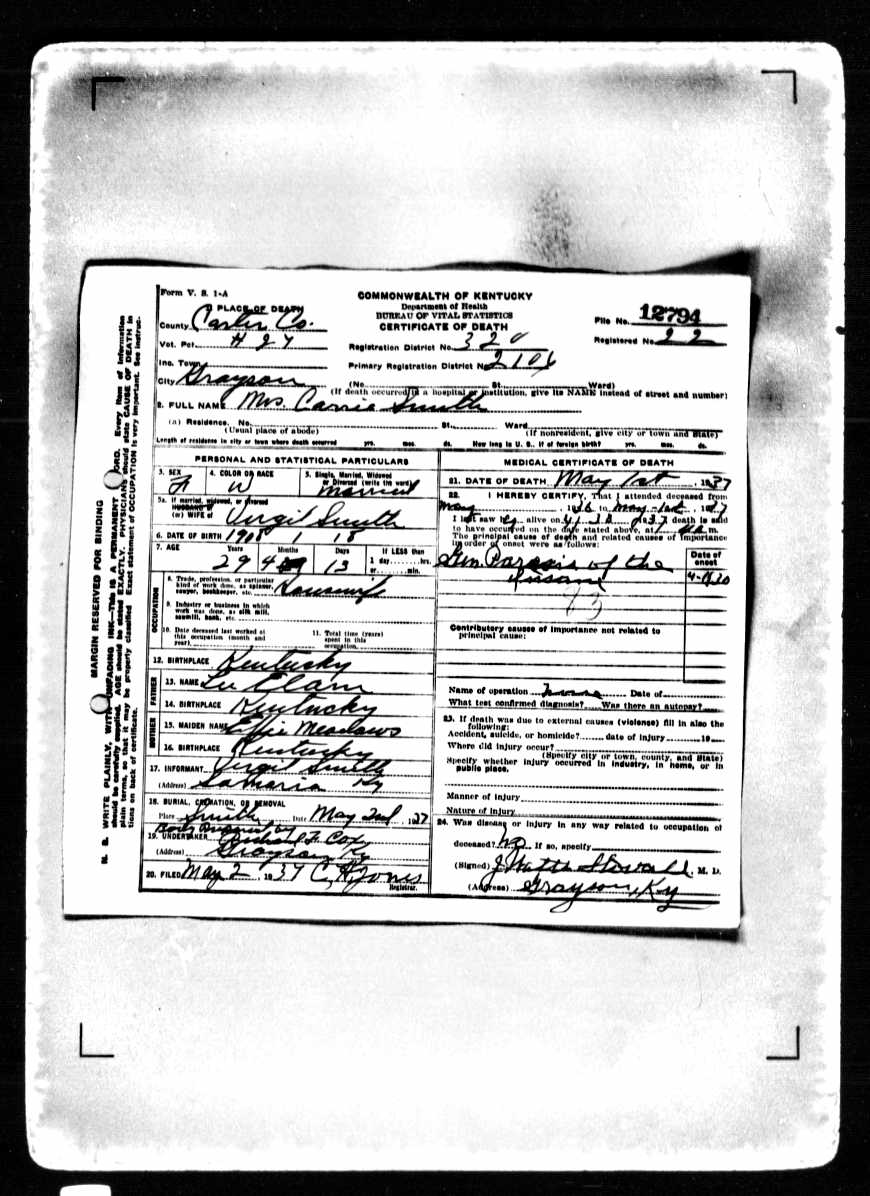 Form V. S. 1-A
COMMONWEALTH OF KENTUCKY
Department of Health
BUREAU OF VITAL STATISTICS
CERTIFICATE OF DEATH
File No. 12794
Registered No. 22
1 PLACE OF DEATH
County Carter Co.
Vot. Pct. # 27
Inc. Town
City Grayson
Registration District No. 320
Primary Registration District No. 2106
(No. St. Ward)
(If death occurred in a hospital or institution, give its NAME instead of street and number)
2. FULL NAME Mrs. Carrie Smith
(a) Residence. No. St., Ward
(Usual place of abode) (If nonresident, give city or town and State)
Length of residence in city or town where death occurred yrs. mos. ds. How long in U. S., if of foreign birth? yrs. mos. ds.
PERSONAL AND STATISTICAL PARTICULARS
3. SEX F
4. COLOR OR RACE W
5. Single, Married, Widowed
or Divorced (write the word)
Married
5a. If married, widowed, or divorced
HUSBAND of
(or) WIFE of Virgil Smith
6. DATE OF BIRTH 1908 1 18
7. AGE Years Months Days If LESS than
1 day hrs.
or min.
29 13
OCCUPATION
8. Trade, profession, or particular
kind of work done, as spinner,
sawyer, bookkeeper, etc. Housewife
9. Industry or business in which
work was done, as silk mill,
sawmill, bank, etc.
10. Date deceased last worked at
this occupation (month and
year)
11. Total time (years)
spent in this
occupation
12. BIRTHPLACE Kentucky
FATHER
13. NAME Elam
14. BIRTHPLACE Kentucky
MOTHER
15. MAIDEN NAME Effie Meadows
16. BIRTHPLACE Kentucky
17. INFORMANT Virgil Smith
(Address) Samaria Ky
18. BURIAL, CREMATION, OR REMOVAL
Place Smith Date May 2nd, 1937
Body Prepared by
19. UNDERTAKER F. Cox
(Address) Grayson, Ky
20. FILED May 2, 1937 Jones
Registrar.
MEDICAL CERTIFICATE OF DEATH
21. DATE OF DEATH May 1st, 1937
22. I HEREBY CERTIFY, That I attended deceased from
May, 1936 to May-1st, 1937
I last saw her alive on 4/30 1937 death is said
to have occurred on the date stated above, at m.
The principal cause of death and related causes of importance
in order of onset were as follows:
Date of
onset
Gen. Paresis of the
Insane
83
Contributory causes of importance not related to
principal cause:
Name of operation none Date of
What test confirmed diagnosis? Was there an autopsy?
23. If death was due to external causes (violence) fill in also the
following:
Accident, suicide, or homicide? date of injury 19
Where did injury occur?
(Specify city or town, county, and State)
Specify whether injury occurred in industry, in home, or in
public place.
Manner of injury
Nature of injury
24. Was disease or injury in any way related to occupation of
deceased? No. If so, specify
(Signed) J Watts Stovall, M. D.
(Address) Grayson, Ky
MARGIN RESERVED FOR BINDING
N. B. WRITE PLAINLY, WITH UNFADING INK—THIS IS A PERMANENT RECORD. Every item of information
should be carefully supplied. AGE should be stated EXACTLY. PHYSICIANS should state CAUSE OF DEATH in
plain terms, so that it may be properly classified. Exact statement of OCCUPATION is very important. See instruc-
tions on back of certificate.